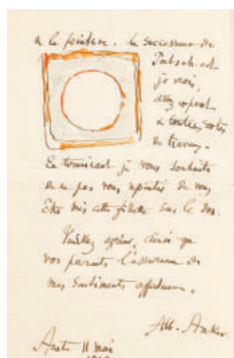 à la peinture. le successeur de
Pätsch est
je crois,
assez expert
à toutes sortes
de travaux.
En terminant je vous souhaite
de ne pas vous repentir de vous
être mis cette fillette sur le dos.
Veuillez agréer, ainsi que
vos parents l'assurance de
mes sentiments affectueux.
Alb. Anker
Anet 11 mai